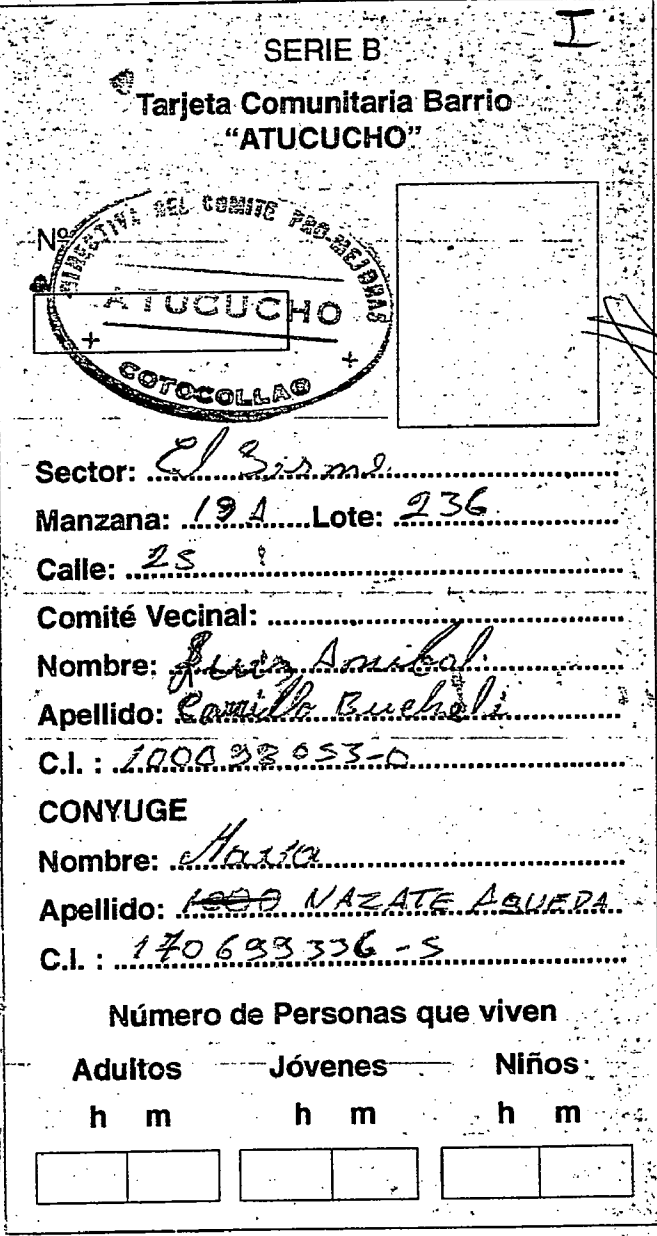 I
SERIE B
Tarjeta Comunitaria Barrio
"ATUCUCHO"
Nº
DIRECTIVA DEL COMITE PRO-MEJORAS
ATUCUCHO
COTOCOLLAO
Sector: El
Manzana: 19A Lote: 236
Calle: 25
Comité Vecinal:
Nombre: Anibal
Apellido: Bucheli
C.I. :
CONYUGE
Nombre: Maria
Apellido: NAZATE AGUEDA
C.I. : 170699336-5
Número de Personas que viven
Adultos Jóvenes Niños
h m h m h m